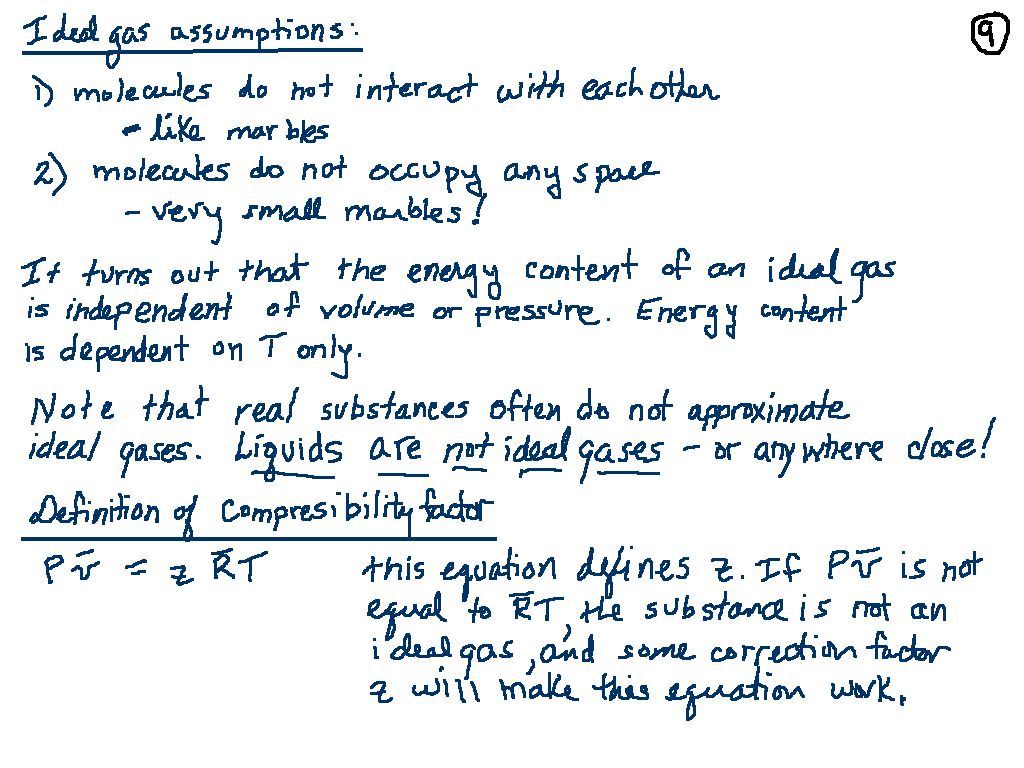 Ideal gas assumptions:
9
1) molecules do not interact with each other
- like marbles
2) molecules do not occupy any space
- very small marbles!
It turns out that the energy content of an ideal gas
is independent of volume or pressure. Energy content
is dependent on T only.
Note that real substances often do not approximate
ideal gases. Liquids are not ideal gases - or anywhere close!
Definition of Compresibility factor
P v̄ = z R̄T
this equation defines z. If P v̄ is not
equal to R̄T, the substance is not an
ideal gas, and some correction factor
z will make this equation work.